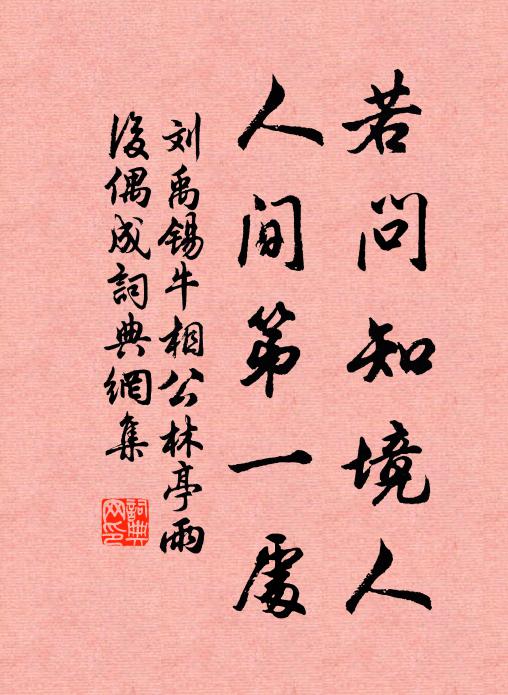 若问知境人
人间第一處
刘禹锡牛相公林亭雨
後偶成詞典網集
詞典
网印